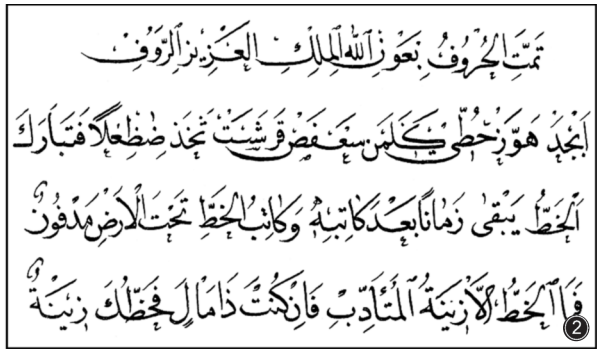 تَمَّتِ الحُرُوفُ بِعَوْنِ اللهِ المَلِكِ العَزِيزِ الرَّؤُفِ
اَبْجَدْ هَوَّزْ حُطِّي كَلَمَنْ سَعْفَصْ قَرَشَتْ ثَخَذْ ضَظِغْلاً فَتَبَارَكَ
اَلخَطُّ يَبْقَى زَمَانًا بَعْدَ كَاتِبِهِ وَكَاتِبُ الخَطِّ تَحْتَ الأَرْضِ مَدْفُونٌ
فَمَا الخَطُّ إِلاَّ زِينَةُ المُتَأَدِّبِ فَإِنْ كُنْتَ ذَا مَالٍ فَخَطُّكَ زِينَةٌ
2